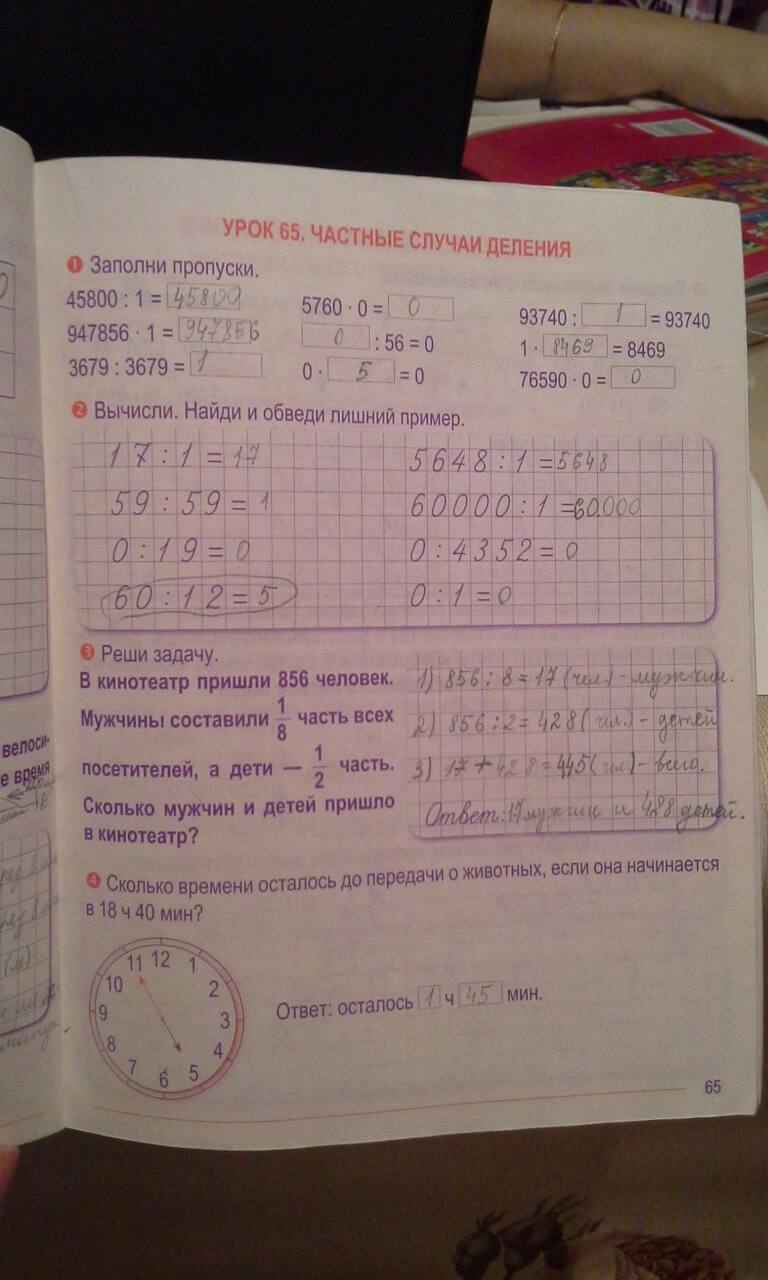 УРОК 65. ЧАСТНЫЕ СЛУЧАИ ДЕЛЕНИЯ
1 Заполни пропуски.
45800 : 1 = 45800
5760 · 0 = 0
93740 : 1 = 93740
947856 · 1 = 947856
0 : 56 = 0
1 · 8469 = 8469
3679 : 3679 = 1
0 · 5 = 0
76590 · 0 = 0
2 Вычисли. Найди и обведи лишний пример.
17 : 1 = 17
5648 : 1 = 5648
59 : 59 = 1
60000 : 1 = 60.000
0 : 19 = 0
0 : 4352 = 0
60 : 12 = 5
0 : 1 = 0
3 Реши задачу.
В кинотеатр пришли 856 человек.
Мужчины составили 1/8 часть всех
посетителей, а дети — 1/2 часть.
Сколько мужчин и детей пришло
в кинотеатр?
1) 856 : 8 = 17 (чел.) - мужчин.
2) 856 : 2 = 428 (чел.) - детей
3) 17 + 428 = 445 (чел) - всего.
Ответ: 17 мужчин и 428 детей.
4 Сколько времени осталось до передачи о животных, если она начинается
в 18 ч 40 мин?
12
1
2
3
4
5
6
7
8
9
10
11
Ответ: осталось 1 ч 45 мин.
65
велоси-
е время